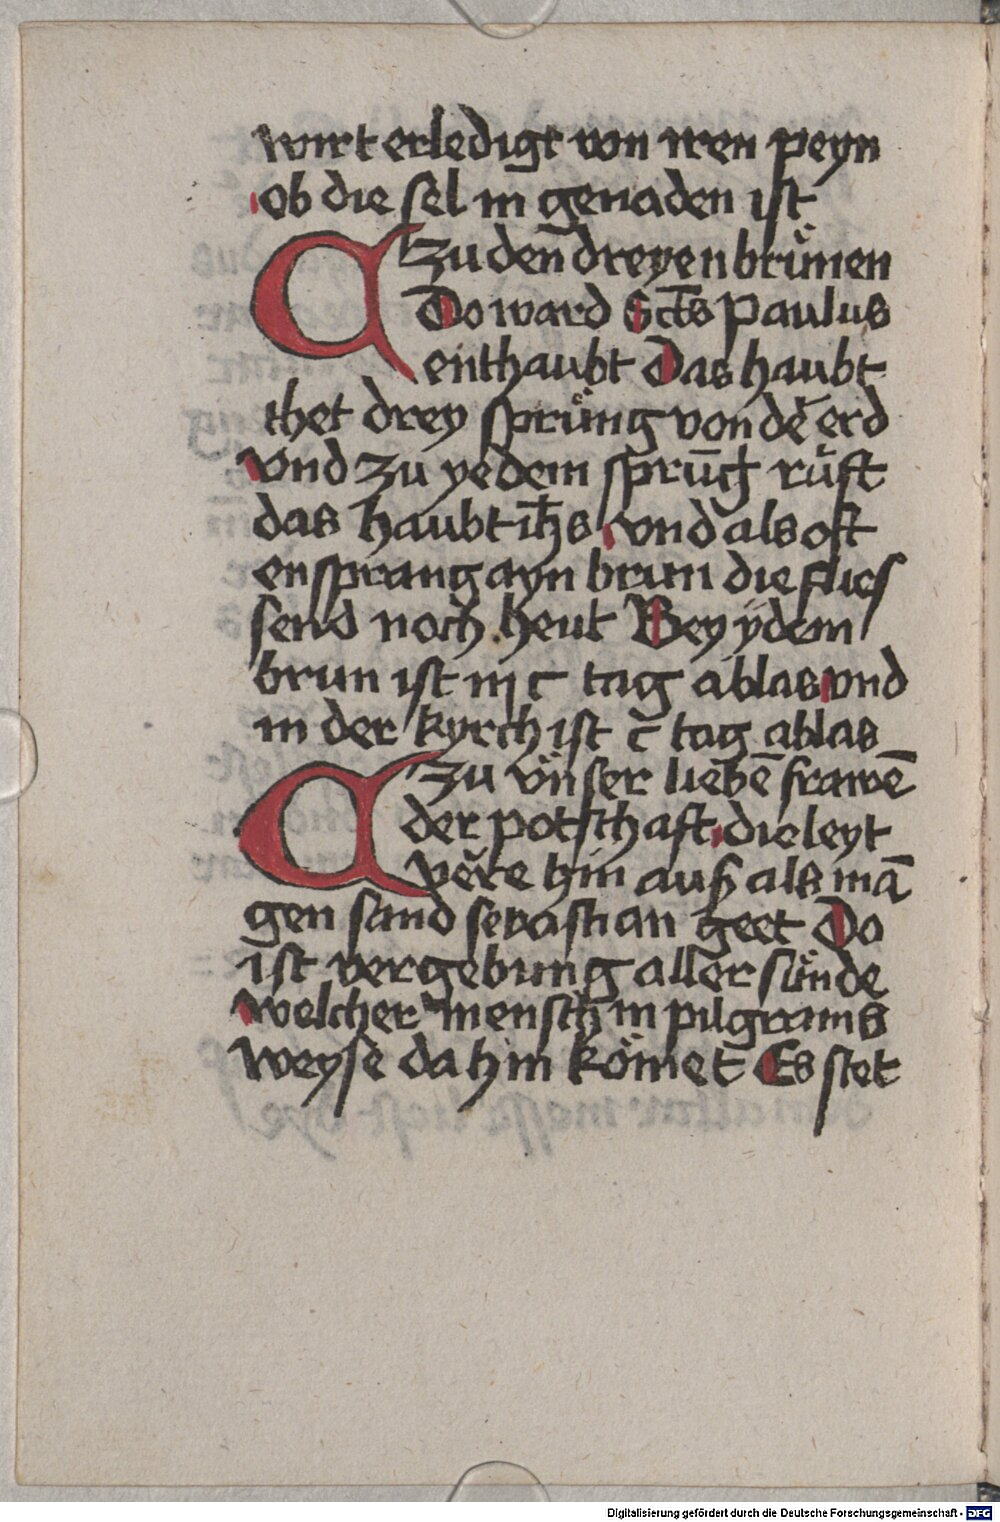 wirt erledigt von iren peyn
ob die sel in genaden ist
Zu den dreyen brůnnen
Do ward Sct̄s Paulus
enthaubt Das haubt
thet drey sprüng von dě erd
vnd zu yedem sprūch rüft
das haubt ih̄s vnd als oft
ensprang ayn brun die flies
send noch heut Bey ÿdem
brun ist iijc tag ablas vnd
in der kyrch ist c̄ tag ablas
Zu vnser liebē frawē
der potschaft die leyt
věre hin auß als mā
gen sand sevastian geet Do
ist vergebung aller sünde
welcher mensch in pilgrams
weyse da hin kömet Es stet
Digitalisierung gefördert durch die Deutsche Forschungsgemeinschaft - DFG